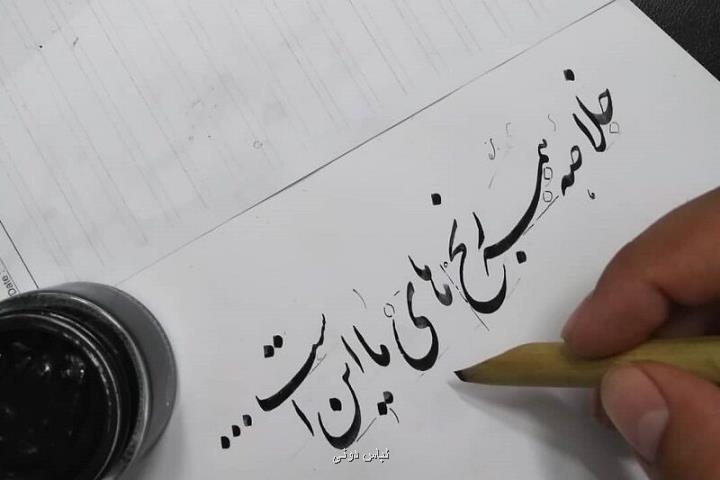 خلاصهٔ همه رنج‌های ما این است...
Date:
لباس دونی